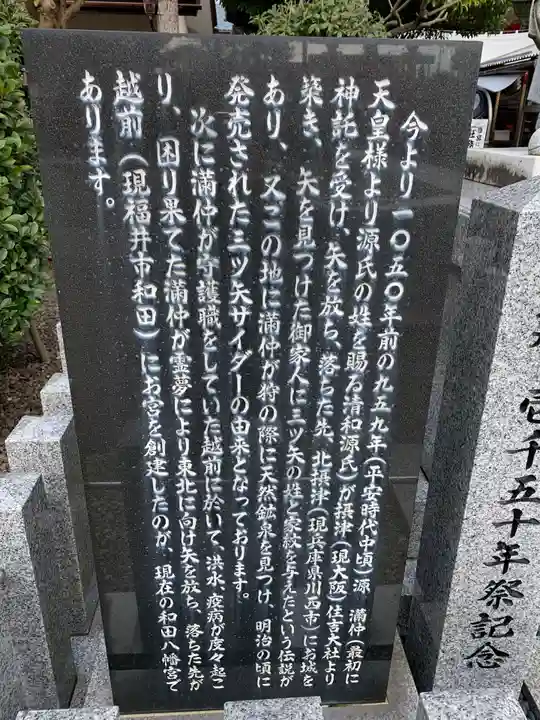 今より一〇五〇年前の九五九年(平安時代中頃)源 満仲(最初に
天皇様より源氏の姓を賜る清和源氏)が摂津(現大阪)住吉大社より
神託を受け、矢を放ち、落ちた先、北摂津(現兵庫県川西市)にお城を
築き、矢を見つけた御家人に三ツ矢の姓と家紋を与えたという伝説が
あり、又この地に満仲が狩の際に天然鉱泉を見つけ、明治の頃に
発売された三ツ矢サイダーの由来となっております。
次に満仲が守護職をしていた越前に於いて、洪水、疫病が度々起こ
り、困り果てた満仲が霊夢により東北に向け矢を放ち、落ちた先が
越前(現福井市和田)にお宮を創建したのが、現在の和田八幡宮で
あります。
壱千五十年祭記念